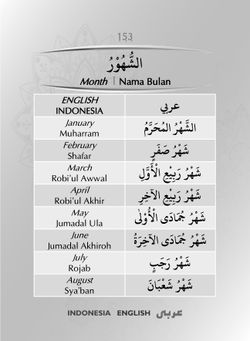 153
الشُّهُوْرُ
Month | Nama Bulan
ENGLISH
INDONESIA
عربي
January
Muharram
الشَّهْرُ المُحَرَّمُ
February
Shafar
شَهْرُ صَفَرٍ
March
Robi'ul Awwal
شَهْرُ رَبِيْعِ الْأَوَّلِ
April
Robi'ul Akhir
شَهْرُ رَبِيْعِ الآخِرِ
May
Jumadal Ula
شَهْرُ جُمَادَى الْأُوْلَى
June
Jumadal Akhiroh
شَهْرُ جُمَادَى الآخِرَةُ
July
Rojab
شَهْرُ رَجَبٍ
August
Sya'ban
شَهْرُ شَعْبَانَ
INDONESIA ENGLISH عربى